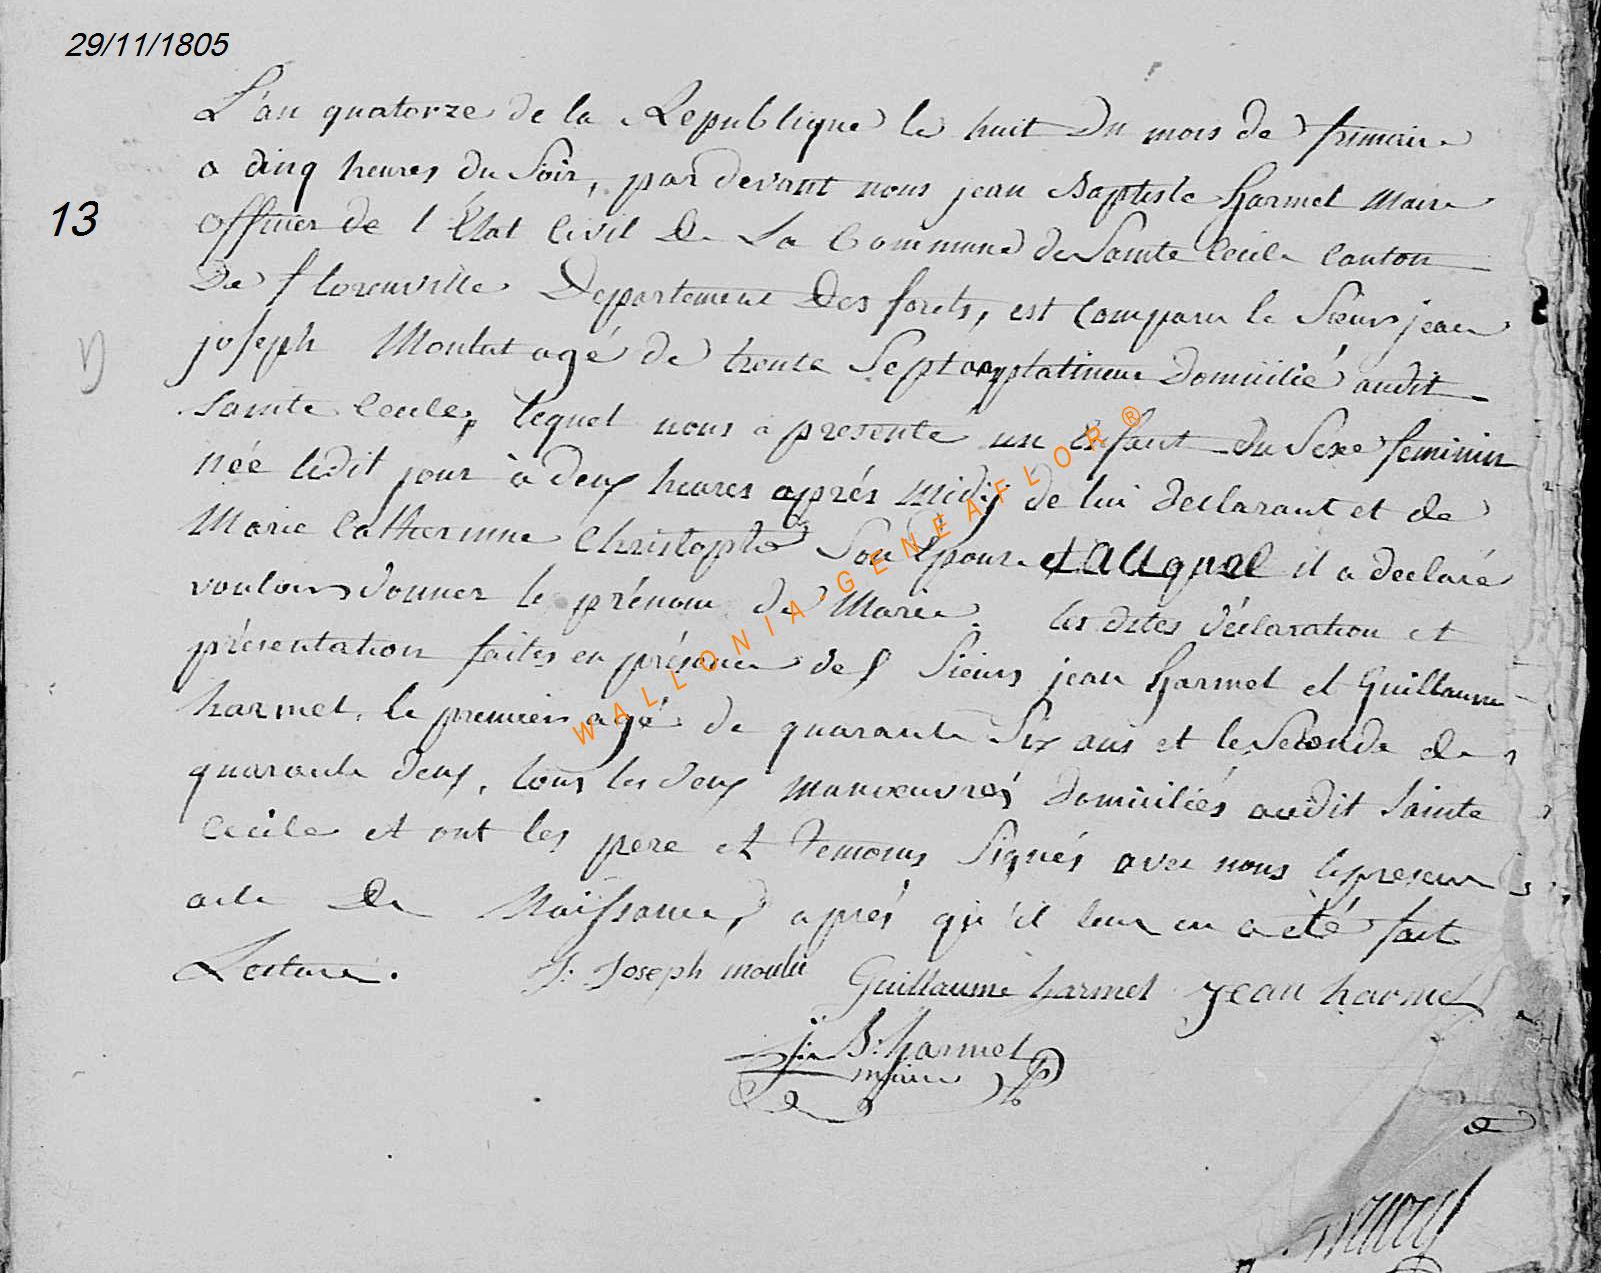 29/11/1805
L'an quatorze de la Republique le huit du mois de frimaire
a cinq heures du Soir, par devant nous jean Baptiste Harmel Maire
13
officier de l'État Civil De La Commune de Sainte Cecile Canton
De florenville Departement Des forets, est Comparu le Sieur jean
joseph Moulut agé de trente Sept ans platineur Domicilié audit
Sainte Cecile, lequel nous a presenté un Enfant du Sexe feminin
née ledit jour à deux heures aprés Midy de lui declarant et de
Marie Catherinne Christophe Son Epouse et auquel il a declaré
vouloir donner le prénom de Marie. les dites déclaration et
présentation faites en présence des Sieurs jean Harmel et Guillaume
harmel, le premier agé de quarante Six ans et le Seconde de
quarante deux, tous les deux manoeuvres domiciliés audit Sainte
Cecile et ont les pere et temoins Signés avec nous le present
acte De Naissance, aprés qu'il leur en a été fait
Lecture. J. Joseph moulu Guillaume harmel jean harmel
j. B. harmel
maire
WALLONIA-GENEAFLOR®